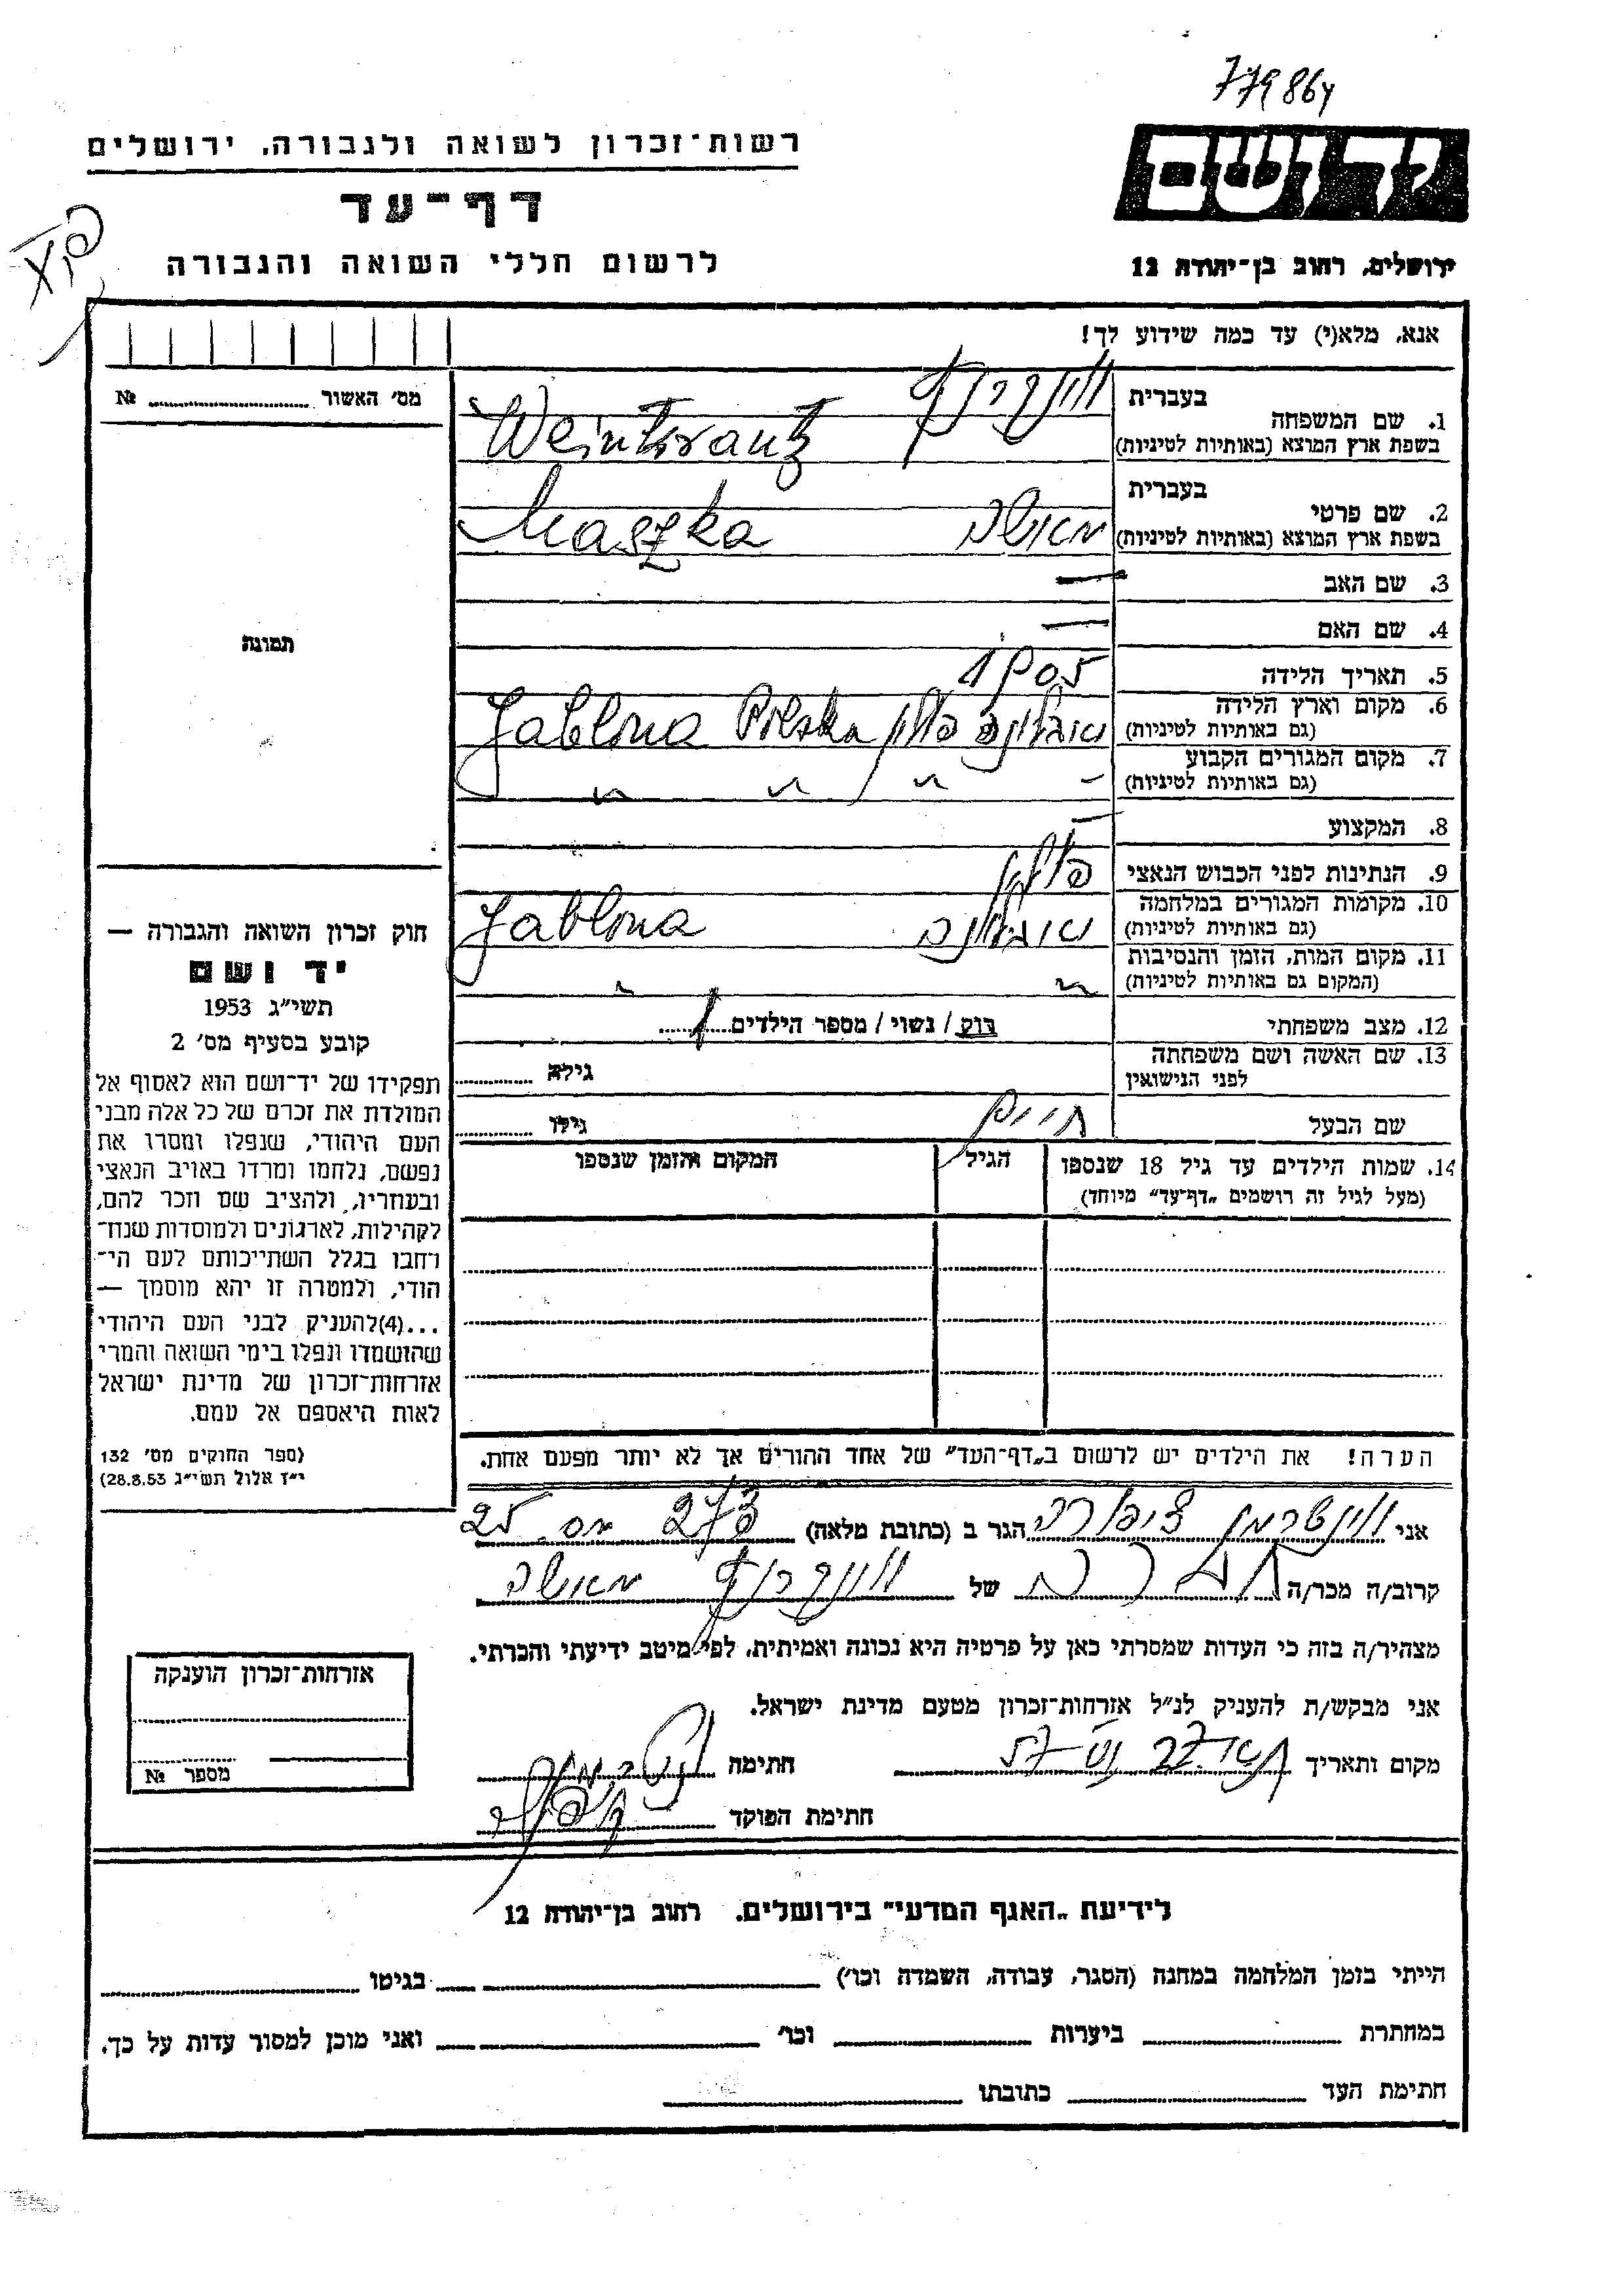 רשות־זכרון לשואה ולגבורה, ירושלים
דף־עד
לרשום חללי השואה והגבורה
ירושלים, רחוב בן־יהודה 12
אנא, מלא(י) עד כמה שידוע לך!
מס׳ האשור № 
תמונה
חוק זכרון השואה והגבורה —
יד ושם
תשי״ג 1953
קובע בסעיף מס׳ 2
תפקידו של יד־ושם הוא לאסוף אל
המולדת את זכרם של כל אלה מבני
העם היהודי, שנפלו ומסרו את
נפשם, נלחמו ומרדו באויב הנאצי
ובעוזריו, ולהציב שם וזכר להם,
לקהילות, לארגונים ולמוסדות שנח־
רחבו בגלל השתייכותם לעם הי־
הודי, ולמטרה זו יהא מוסמך —
...(4)להעניק לבני העם היהודי
שהושמדו ונפלו בימי השואה והמרי
אזרחות־זכרון של מדינת ישראל
לאות היאספם אל עמם.
(ספר החוקים מס׳ 132
י״ז אלול תשי״ג 28.8.53)
בעברית
1. שם המשפחה
בשפת ארץ המוצא (באותיות לטיניות) Weintraub
בעברית
2. שם פרטי מאשה
בשפת ארץ המוצא (באותיות לטיניות) Maszka
3. שם האב —
4. שם האם —
5. תאריך הלידה 1905
6. מקום וארץ הלידה יאבלונה פולין Jablona Polska
(גם באותיות לטיניות)
7. מקום המגורים הקבוע
(גם באותיות לטיניות) 〃 〃 〃
8. המקצוע —
9. הנתינות לפני הכבוש הנאצי פולין
10. מקומות המגורים במלחמה יאבלונה Jablona
(גם באותיות לטיניות)
11. מקום המות, הזמן והנסיבות
(המקום גם באותיות לטיניות) 〃 〃
12. מצב משפחתי רוק / נשוי / מספר הילדים 1
13. שם האשה ושם משפחתה
לפני הנישואין גילה
שם הבעל חיים גילו
14. שמות הילדים עד גיל 18 שנספו הגיל המקום והזמן שנספו
(מעל לגיל זה רושמים „דף־עד״ מיוחד)
הערה! את הילדים יש לרשום ב„דף־העד״ של אחד ההורים אך לא יותר מפעם אחת.
אני וינטרמן ציפורה הגר ב (כתובת מלאה) 273 מס 25
קרוב/ה מכר/ה חברה של מאשה
מצהיר/ה בזה כי העדות שמסרתי כאן על פרטיה היא נכונה ואמיתית, לפי מיטב ידיעתי והכרתי.
אני מבקש/ת להעניק לנ״ל אזרחות־זכרון מטעם מדינת ישראל.
מקום ותאריך חתימה
חתימת הפוקד
אזרחות־זכרון הוענקה
מספר №
לידיעת „האגף המדעי״ בירושלים, רחוב בן־יהודה 12
הייתי בזמן המלחמה במחנה (הסגר, עבודה, השמדה וכו׳) בגיטו
במחתרת ביערות וכו׳ ואני מוכן למסור עדות על כך.
חתימת העד כתובתו